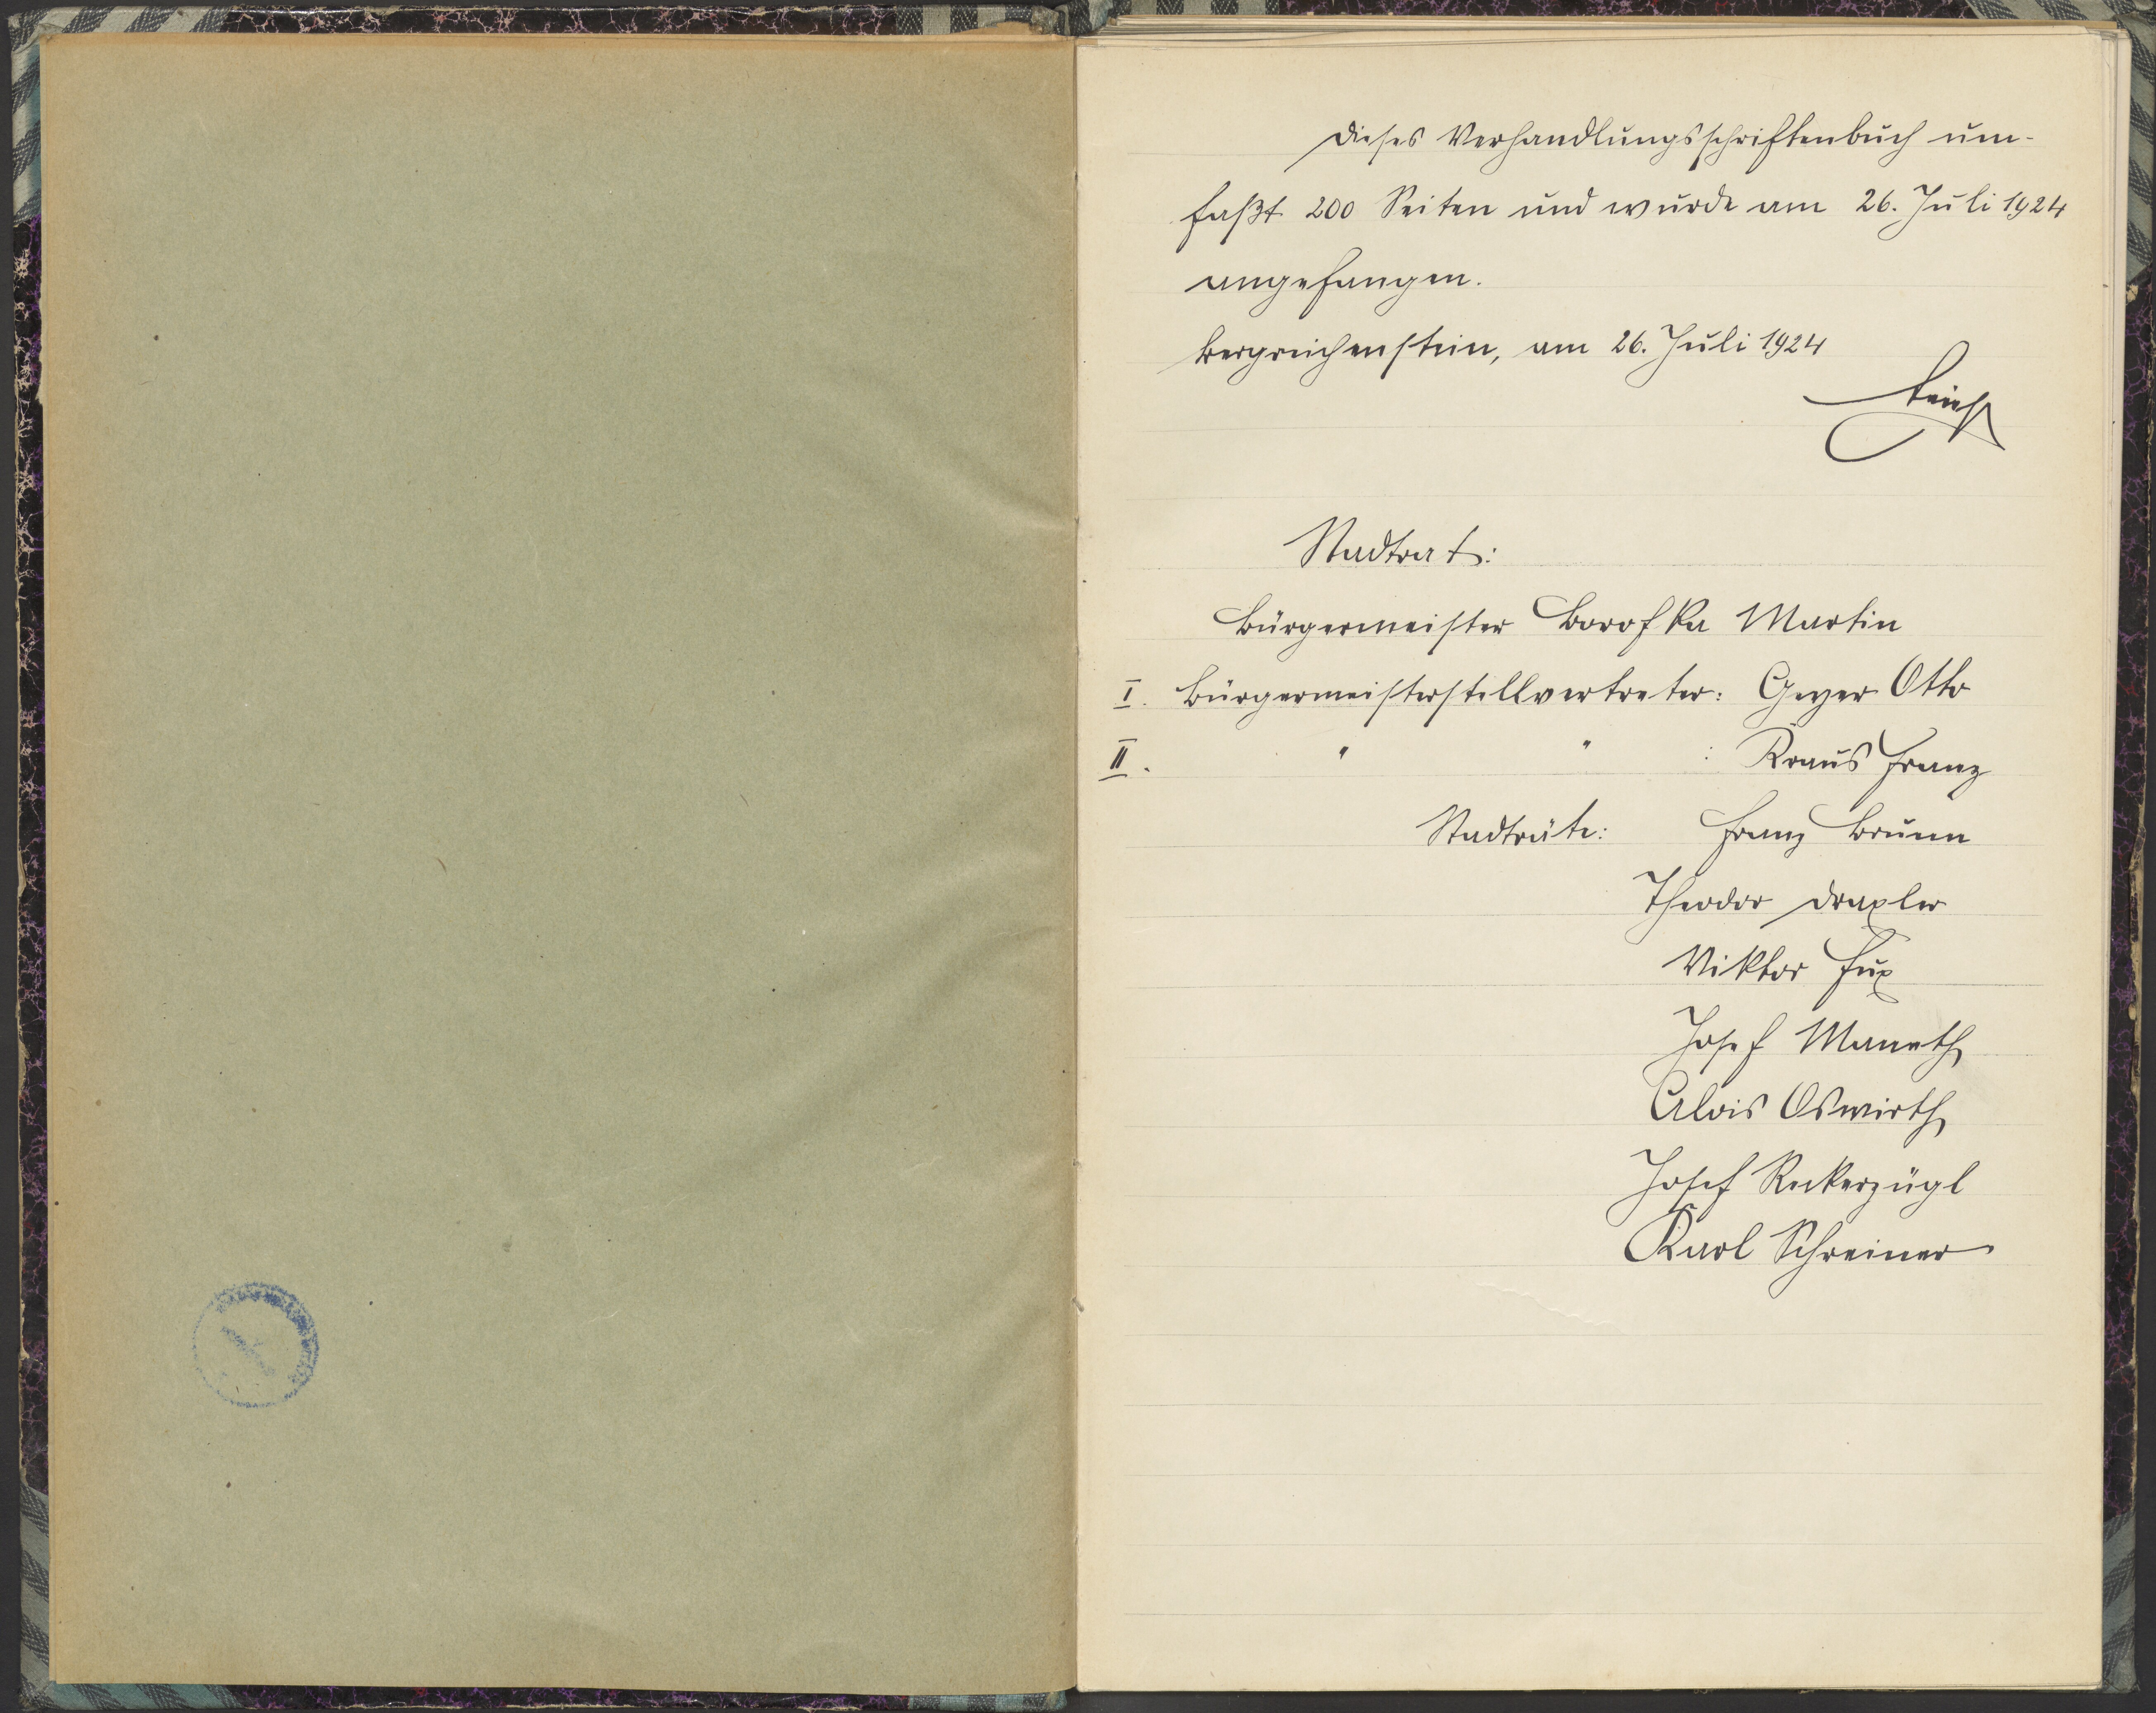 Dieses Verhandlungsschriftenbuch um-
faßt 200 Seiten und wurde am 26. Juli 1924
angefangen.
Bergreichenstein, am 26. Juli 1924
Stadtrat:
Bürgermeister Borofka Martin
I. Bürgermeisterstellvertreter: Geyer Otto
II. " " : Kraus Franz
Stadträte: Franz Brunn
Theodor Draxler
Viktor Fux
Josef Maneth
Alois Oswirth
Josef Reckerzügl
Karl Schreiner